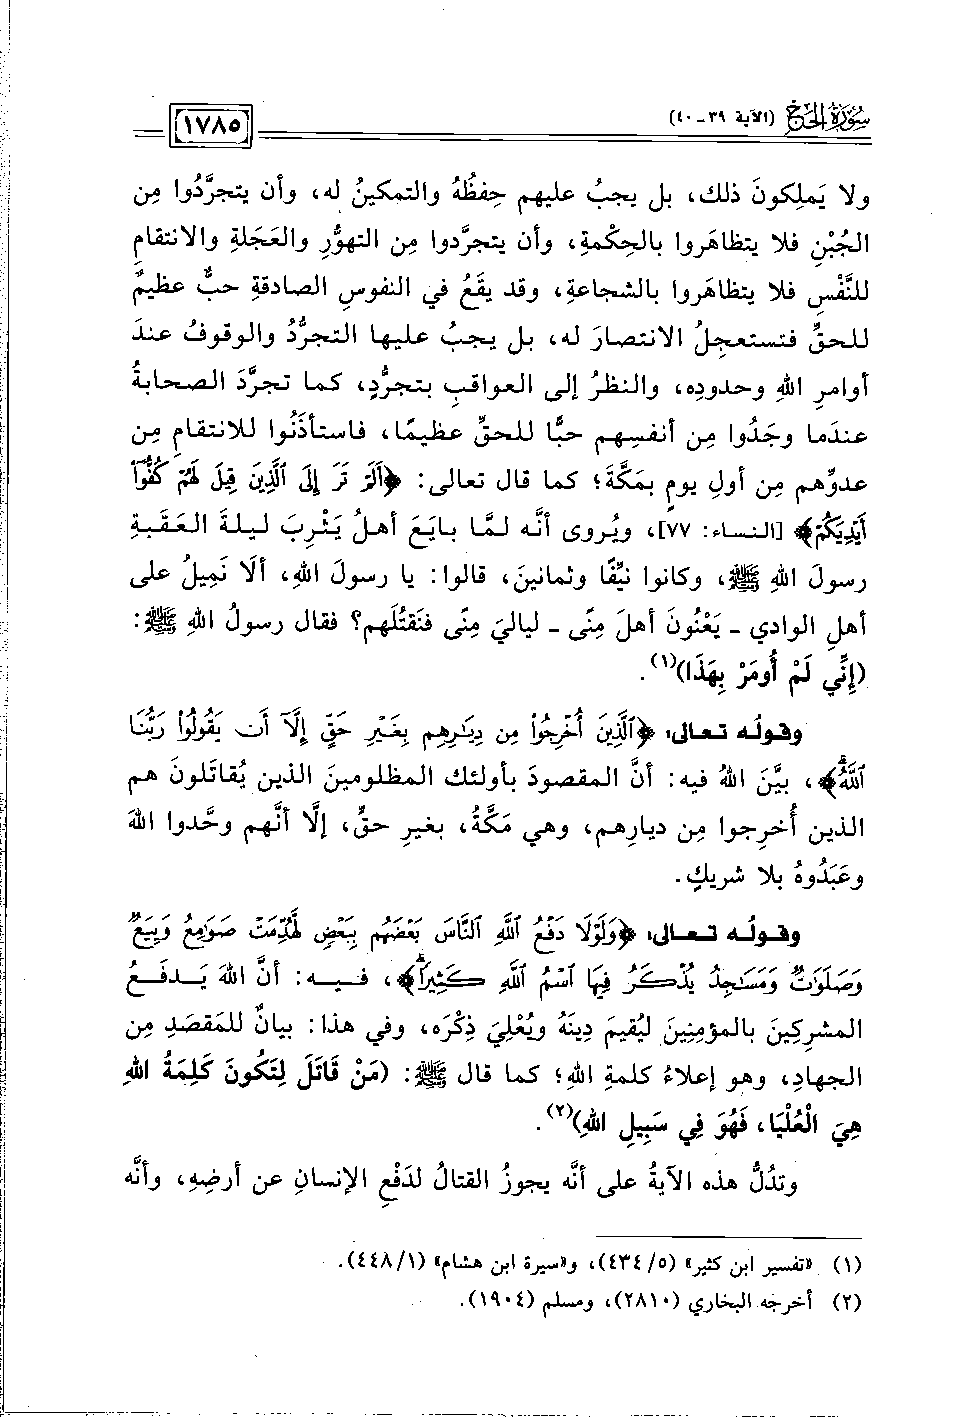 سُورَةُ الحَجِّ (الآية ٣٩ - ٤٠)
١٧٨٥
ولا يَملِكونَ ذلك، بل يجبُ عليهم حِفظُهُ والتمكينُ له، وأن يتجرَّدُوا مِن
الجُبْنِ فلا يتظاهَروا بالحِكْمةِ، وأن يتجرَّدوا مِن التهوُّرِ والعَجَلةِ والانتقامِ
للنَّفْسِ فلا يتظاهَروا بالشجاعةِ، وقد يقَعُ في النفوسِ الصادقةِ حبٌّ عظيمٌ
للحقِّ فتستعجِلُ الانتصارَ له، بل يجبُ عليها التجرُّدُ والوقوفُ عندَ
أوامرِ اللهِ وحدودِه، والنظرُ إلى العواقبِ بتجرُّدٍ، كما تجرَّدَ الصحابةُ
عندَما وجَدُوا مِن أنفسِهم حبًّا للحقِّ عظيمًا، فاستأذَنُوا للانتقامِ مِن
عدوِّهم مِن أولِ يومٍ بمَكَّةَ؛ كما قال تعالى: ﴿أَلَمْ تَرَ إِلَى ٱلَّذِينَ قِيلَ لَهُمْ كُفُّوٓا۟
أَيْدِيَكُمْ﴾ [النساء: ٧٧]، ويُروى أنَّه لمَّا بايَعَ أهلُ يَثْرِبَ ليلةَ العَقَبةِ
رسولَ اللهِ ﷺ، وكانوا نيِّفًا وثمانينَ، قالوا: يا رسولَ اللهِ، ألَا نَمِيلُ على
أهلِ الوادي - يَعْنُونَ أهلَ مِنًى - لياليَ مِنًى فنَقتُلَهم؟ فقال رسولُ اللهِ ﷺ:
(إِنِّي لَمْ أُومَرْ بِهَذَا)(١).
وقولُه تعالى: ﴿ٱلَّذِينَ أُخْرِجُوا۟ مِن دِيَٰرِهِم بِغَيْرِ حَقٍّ إِلَّآ أَن يَقُولُوا۟ رَبُّنَا
ٱللَّهُ﴾، بيَّنَ اللهُ فيه: أنَّ المقصودَ بأولئك المظلومينَ الذين يُقاتَلونَ هم
الذين أُخرِجوا مِن ديارِهم، وهي مَكَّةُ، بغيرِ حقٍّ، إلَّا أنَّهم وحَّدوا اللهَ
وعَبَدُوهُ بلا شريكٍ.
وقولُه تعالى: ﴿وَلَوْلَا دَفْعُ ٱللَّهِ ٱلنَّاسَ بَعْضَهُم بِبَعْضٍ لَّهُدِّمَتْ صَوَٰمِعُ وَبِيَعٌ
وَصَلَوَٰتٌ وَمَسَٰجِدُ يُذْكَرُ فِيهَا ٱسْمُ ٱللَّهِ كَثِيرًا﴾، فيه: أنَّ اللهَ يَدفَعُ
المشرِكينَ بالمؤمِنينَ ليُقيمَ دِينَهُ ويُعْلِيَ ذِكْرَه، وفي هذا: بيانٌ للمَقصَدِ مِن
الجهادِ، وهو إعلاءُ كلمةِ اللهِ؛ كما قال ﷺ: (مَنْ قَاتَلَ لِتَكُونَ كَلِمَةُ اللهِ
هِيَ الْعُلْيَا، فَهُوَ فِي سَبِيلِ اللهِ)(٢).
وتدُلُّ هذه الآيةُ على أنَّه يجوزُ القتالُ لدَفْعِ الإنسانِ عن أرضِهِ، وأنَّه
(١) «تفسير ابن كثير» (٥/ ٤٣٤)، و«سيرة ابن هشام» (١/ ٤٤٨).
(٢) أخرجه البخاري (٢٨١٠)، ومسلم (١٩٠٤).